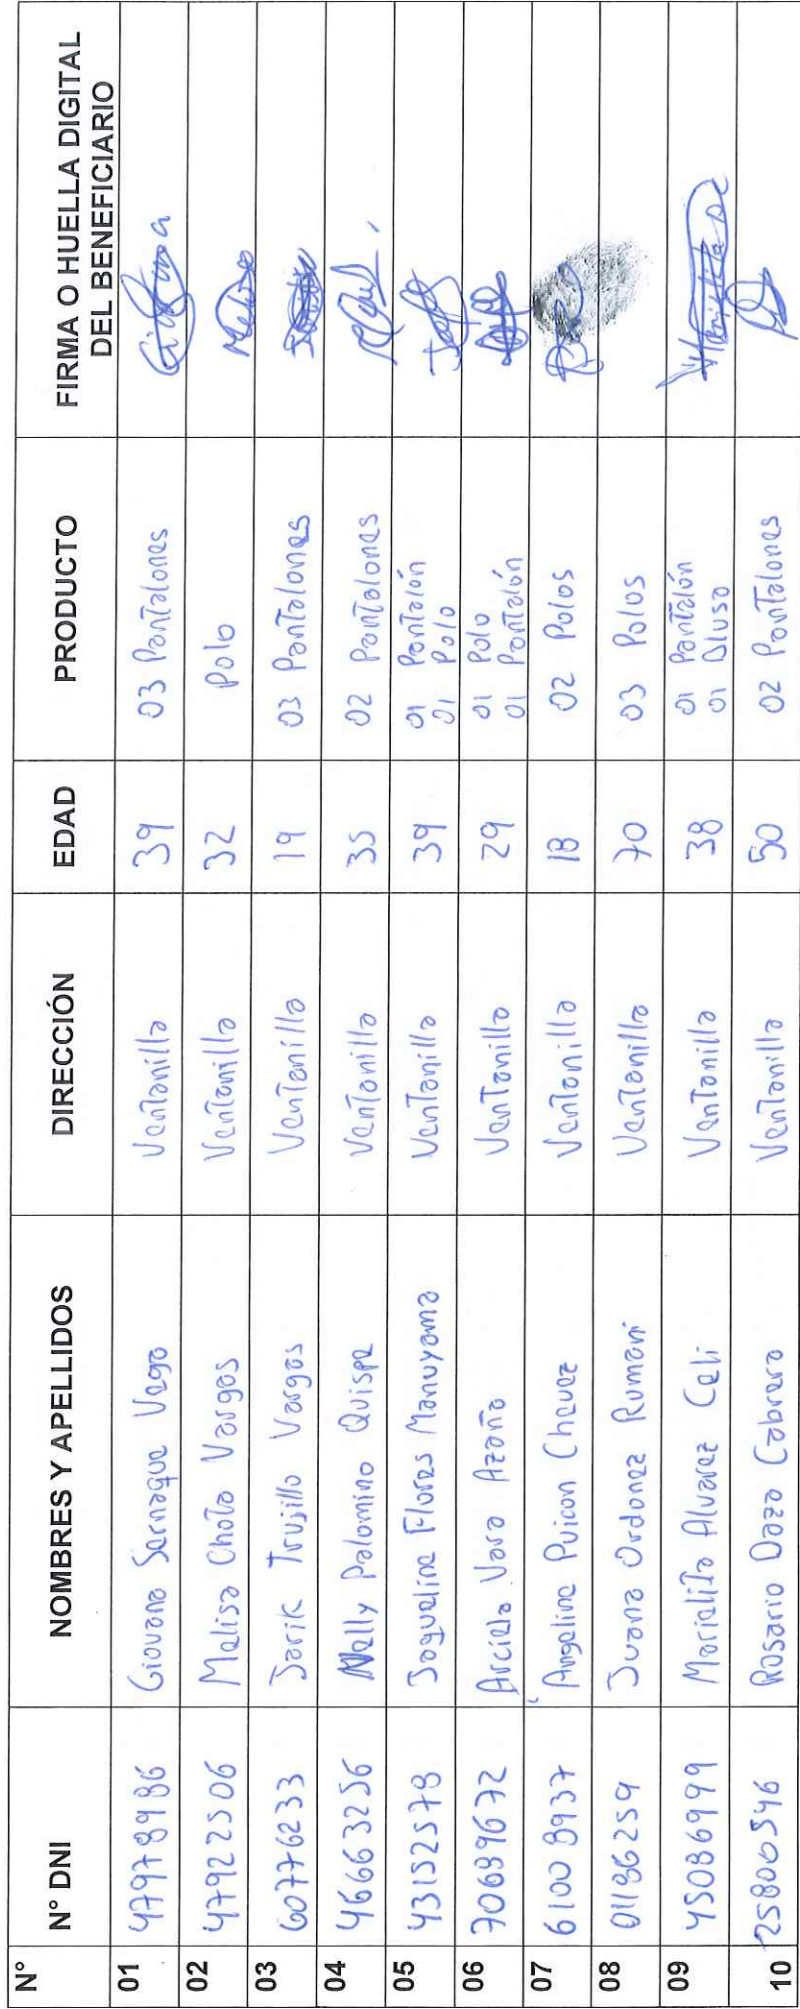 N° N° DNI NOMBRES Y APELLIDOS DIRECCIÓN EDAD PRODUCTO FIRMA O HUELLA DIGITAL
DEL BENEFICIARIO
01 47978986 Giovana Sernaque Vega Ventanilla 39 03 Pantalones
02 47922506 Melisa Chota Vargas Ventanilla 32 Polo
03 60776233 Jarik Trujillo Vargas Ventanilla 19 03 Pantalones
04 46663256 Nelly Palomino Quispe Ventanilla 35 02 Pantalones
05 43152578 Jaqueline Flores Manuyama Ventanilla 39 01 Pantalón
01 Polo
06 70689672 Arciela Vara Azaña Ventanilla 29 01 Polo
01 Pantalón
07 61008937 Angeline Puicon Chavez Ventanilla 18 02 Polos
08 01186259 Juana Ordonez Rumani Ventanilla 70 03 Polos
09 45086999 Marialita Alvarez Celi Ventanilla 38 01 Pantalón
01 Blusa
10 25800546 Rosario Daza Cabrera Ventanilla 50 02 Pantalones